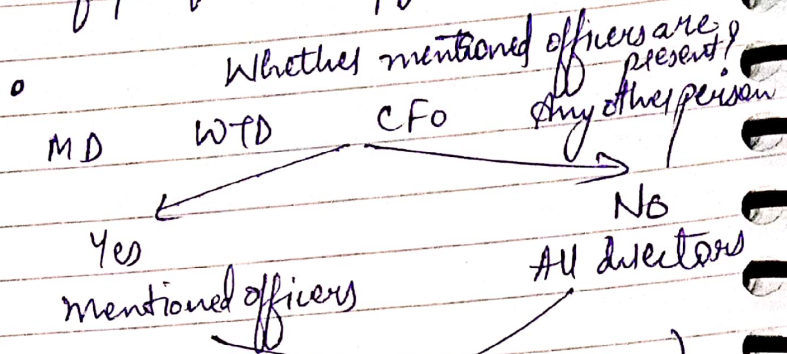 Whether mentioned officers are
present?
MD WTD CFO Any other person
Yes No
mentioned officers All directors